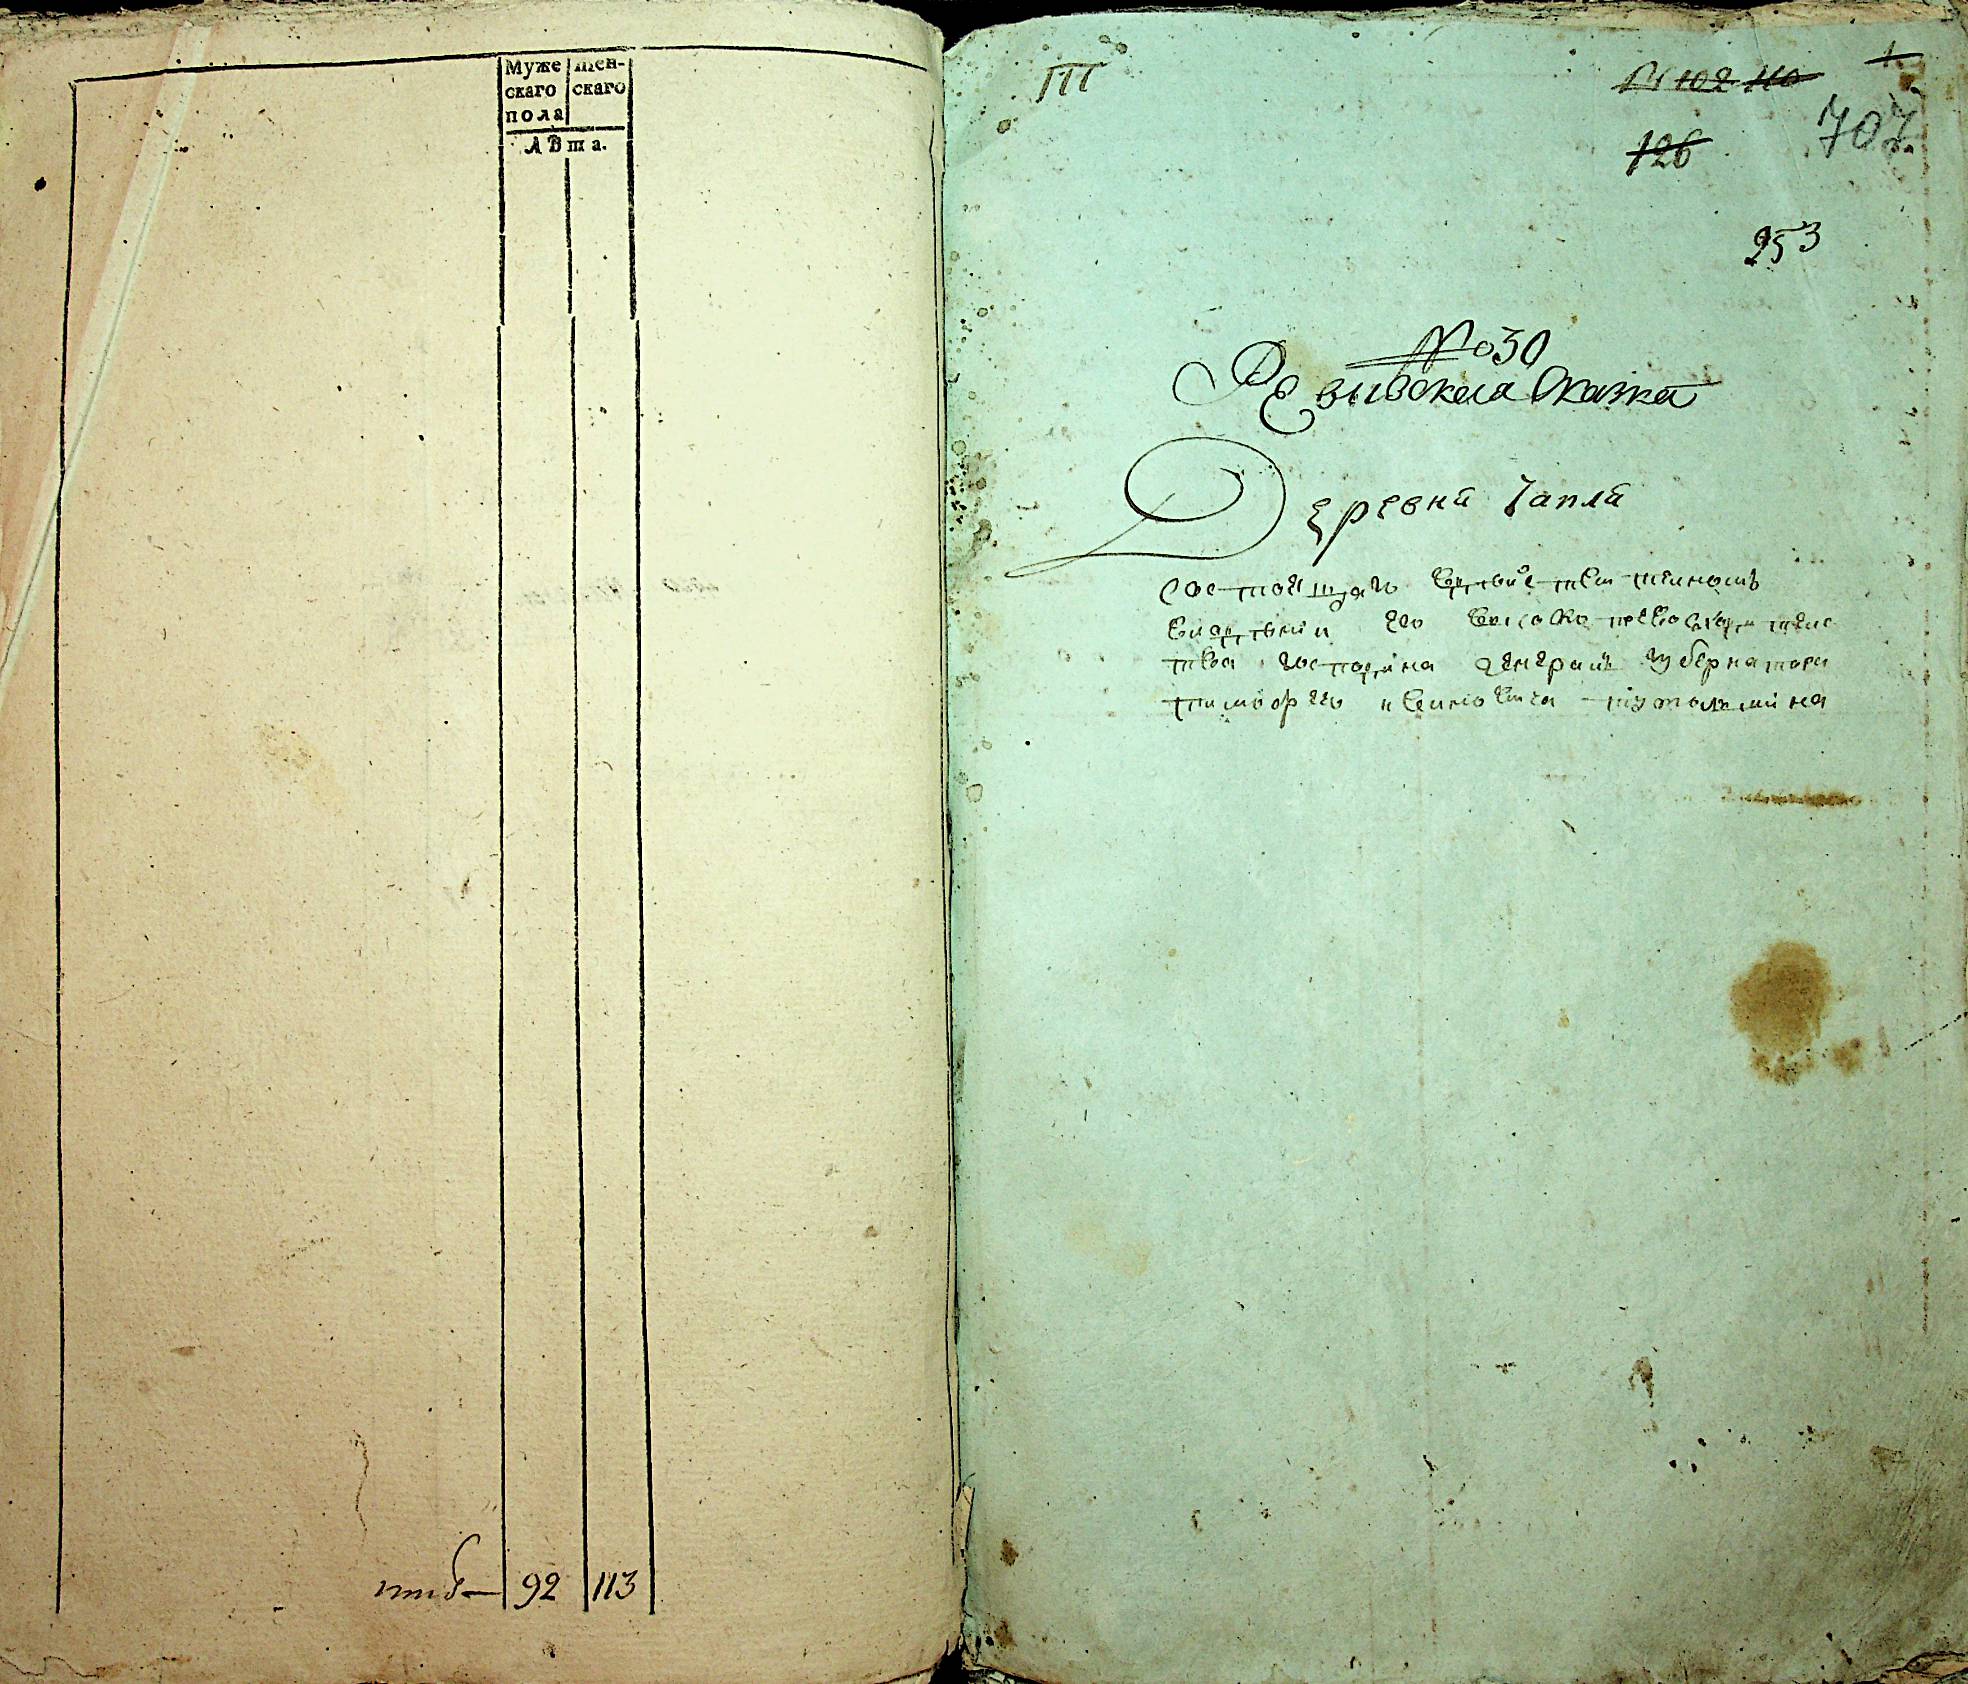 Муже
скаго
пола
жен-
скаго
лѣта.
итого 92 113
III
№ 102 110
1
126
707
253
№ 30
Ревизская Сказка
Деревни Чапли
состоящаго
его высоко превосходитель
ства господина генерала губернатора
тимофея ивановича тутолмина